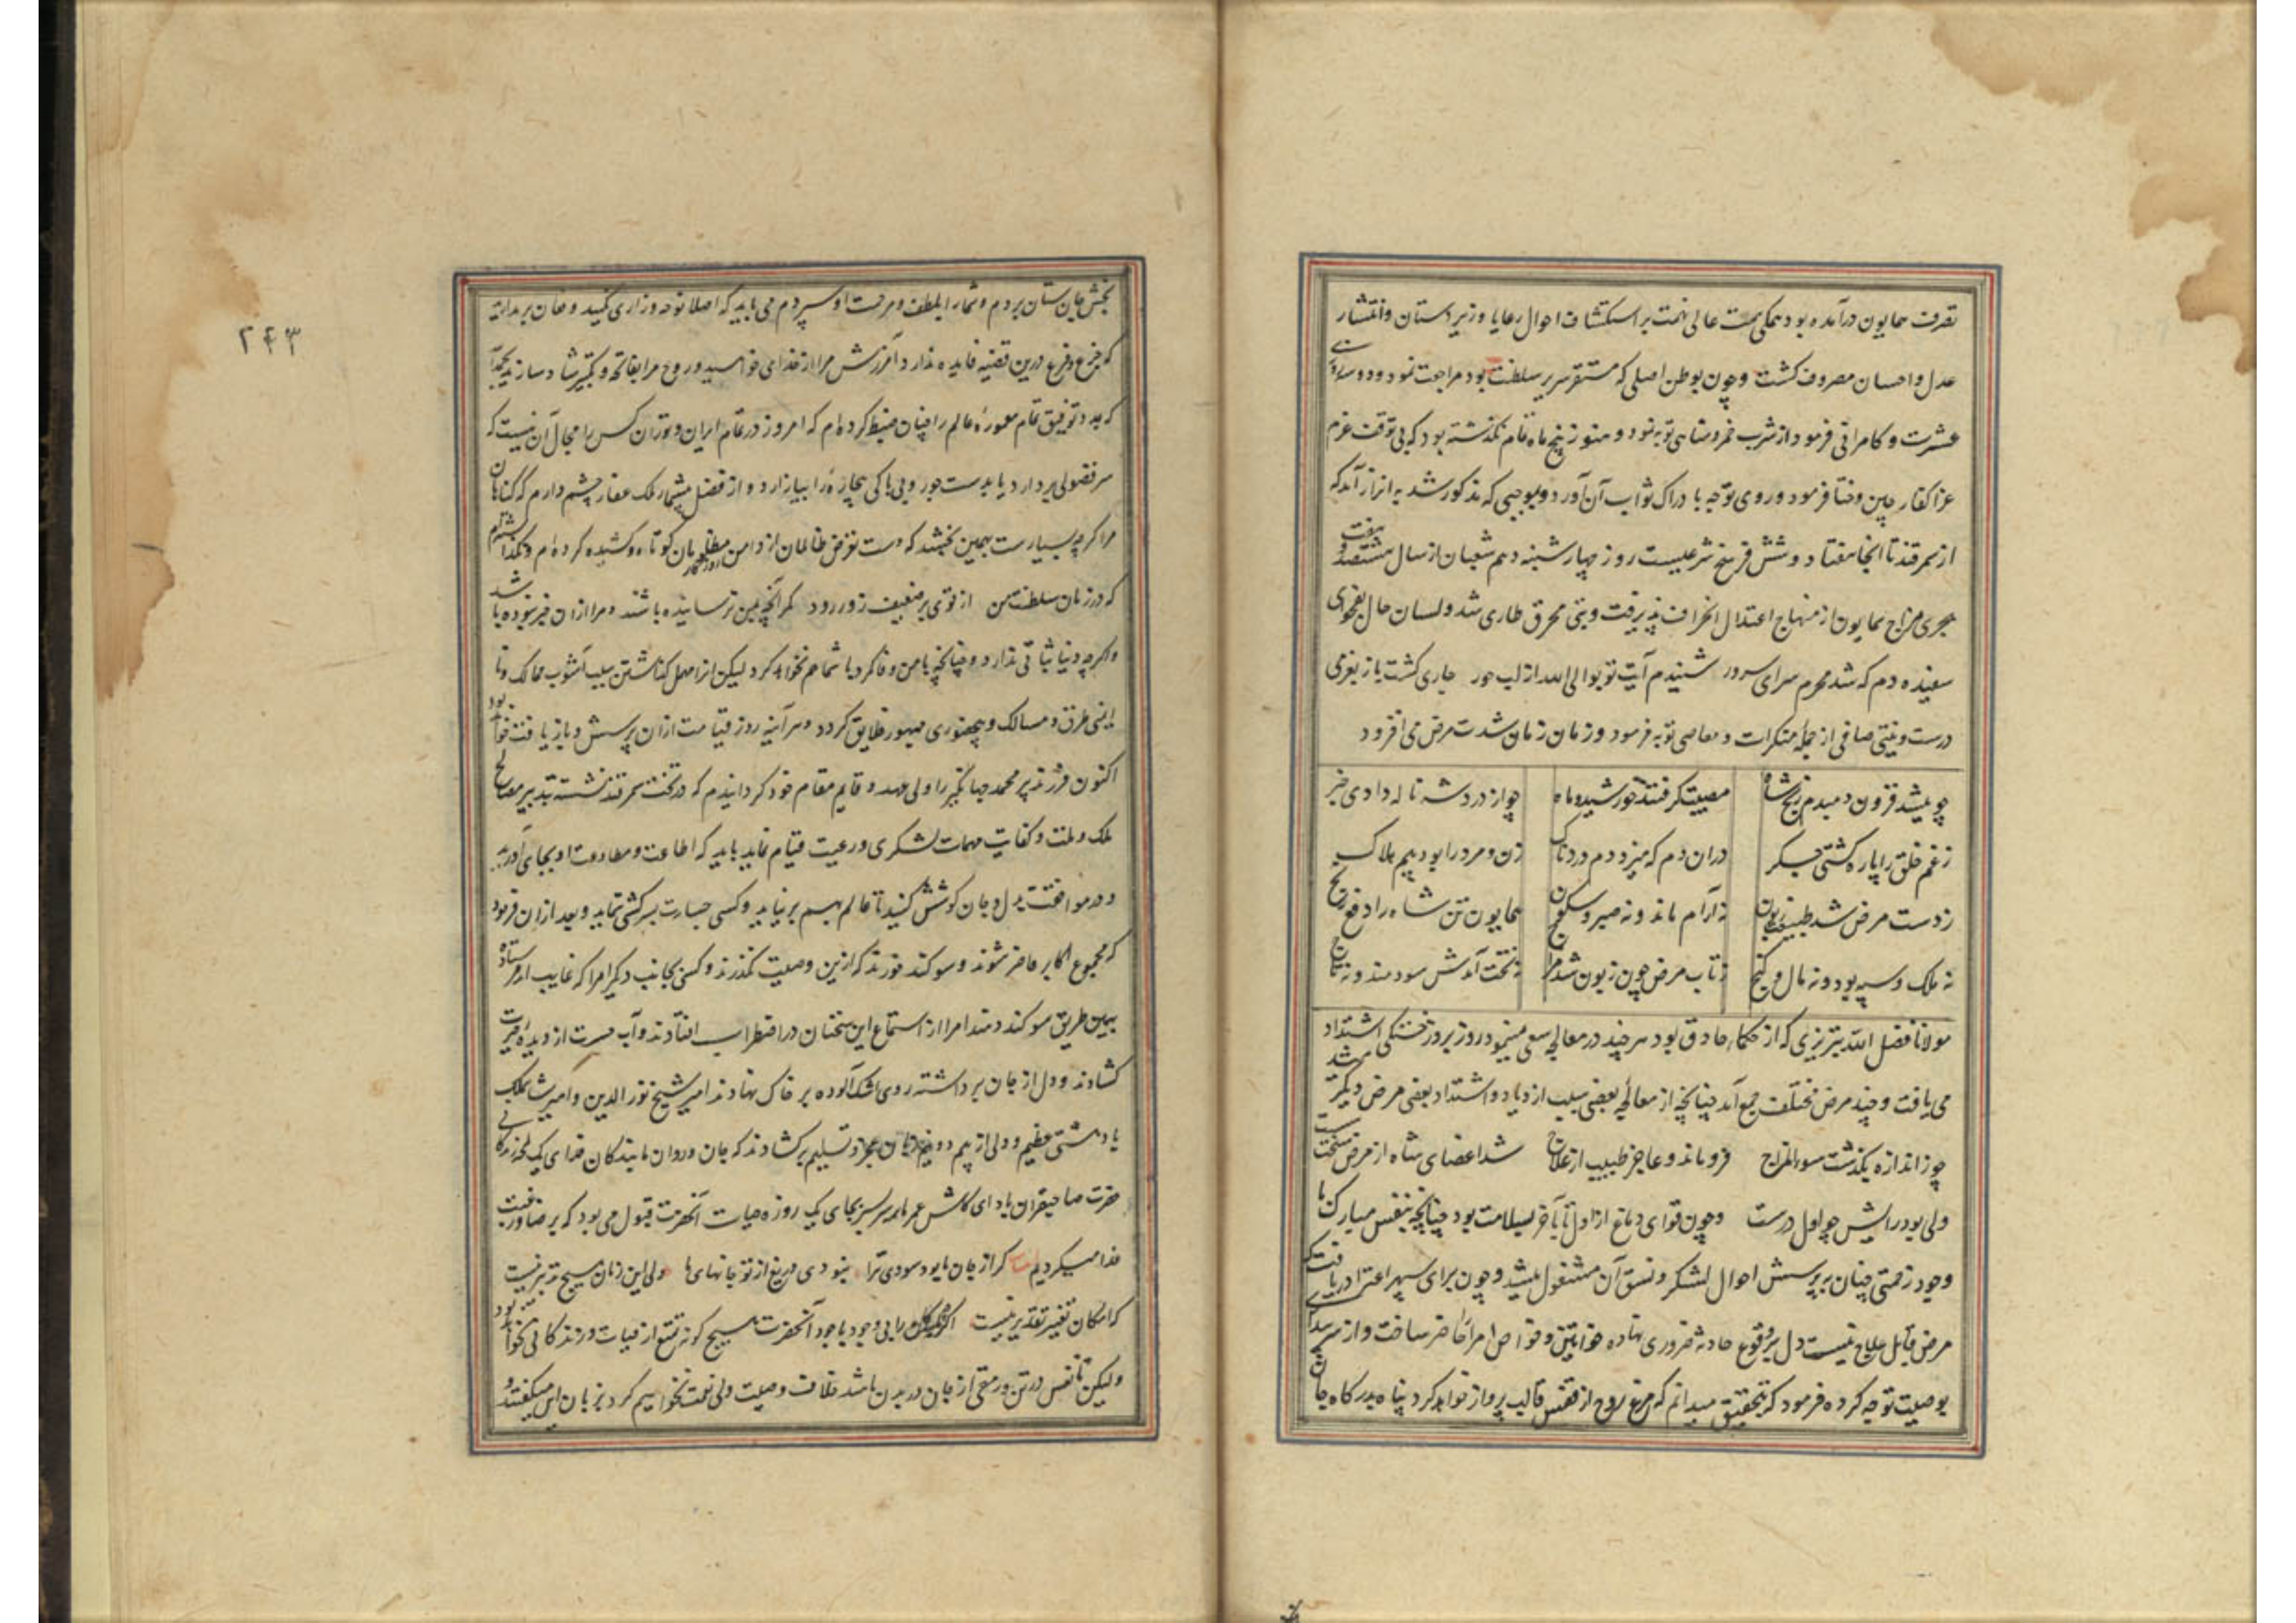 تصرف همایون درآمده بود همگی همت عالی نهمت بر استکشاف احوال رعایا و زیردستان و انتشار
عدل و احسان مصروف گشت و چون بوطن اصلی که مستقر سریر سلطنت بود مراجعت نمود و دو سه ماهی
عشرت و کامرانی فرمود از شرب خمر و مناهی توبه نمود و هنوز پنج ماه تمام نگذشته بود که بی توقف عزم
غزا کفار چین و ختا فرمود و روی توجه با دراک ثواب آن آورد و بموجبی که مذکور شد به اترار آمد که
از سمرقند تا انجا هفتاد و شش فرسخ شرعیست روز چهارشنبه دهم شعبان از سال هشتصد و هفت
هجری مزاج همایون از منهاج اعتدال انحراف پذیرفت و تبی محرق طاری شد و لسان حال بفحوای
سفیده دم که شدم محرم سرای سرور شنیدم آیت توبوا الی الله از لب حور جاری گشت باز بعزمی
درست و نیتی صافی از جمله منکرات و معاصی توبه فرمود و زمان زمان شدت مرض می افزود
چو میشد فزون دمبدم رنج شاه مصیبت گرفتند خورشید و ماه چو از درد شه ناله دادی خبر
ز غم خلق را پاره گشتی جگر در آن دم که میزد دم دردناک زن و مرد را بود بیم هلاک
ز دست مرض شد طبیعت زبون نه آرام ماند و نه صبر و سکون همایون تن شاه را دفع رنج
نه ملک و سپه بود و نه مال و گنج ز تاب مرض چون زبون شد مزاج نه تخت آمدش سودمند و نه تاج
مولانا فضل الله تبریزی که از حکماء حاذق بود هر چند در معالجه سعی مینمود روز بروز خستگی اشتداد
می یافت و چند مرض مختلف جمع آمد چنانچه از معالجه بعضی سبب ازدیاد و اشتداد بعضی مرض دیگر میشد
چو ز اندازه بگذشت سوء المزاج فرو ماند و عاجز طبیب از علاج شد اعضای شاه از مرض سخت سست
ولی بود رایش چو اول درست و چون قوای دماغ از اول تا بآخر بسلامت بود چنانچه بنفس مبارک با
وجود زحمتی چنان بپرسش احوال لشکر و نسق آن مشغول میشد و چون برای سپهر اعتلا دریافت که
مرض قابل علاج نیست دل بر وقوع حادثه ضروری نهاده خواتین و خواص امرا حاضر ساخت و از سر
بوصیت توجه کرده فرمود که بتحقیق میدانم که مرغ روح از قفس قالب پرواز خواهد کرد پناه بدرگاه جان
بخش جان ستان بردم و شما را بلطف و مرحمت او سپردم می باید که اصلا نوحه و زاری نکنید و فغان بر مدارید
که جزع و فزع درین قضیه فایده ندارد آمرزش مرا از خدای خواهید و روح مرا بفاتحه و تکبیر شاد سازید بحمد الله
که بمدد توفیق تمام معموره عالم را چنان ضبط کرده ام که امروز در تمام ایران و توران کس را مجال آن نیست که
سر فضولی بردارد یا بدست جور و بی باکی بیچاره را بیازارد و از فضل بیشمار ملک غفار چشم دارم که گناهان
مرا گر چه بسیارست بهمین بخشد که دست تعرض ظالمان از دامن مظلومان کوتاه و کشیده کرده ام و نگذاشتم
که در زمان سلطنت من از قوی بر ضعیف زور رود مگر آنچه بمن نرسانیده باشند و مرا از آن خبر نبوده باشد
و اگر چه دنیا ثباتی ندارد و چنانچه با من وفا نکرد با شما هم نخواهد کرد لیکن انرا مهمل گذاشتن سبب آشوب ممالک و نا
ایمنی طرق و مسالک و بیحضوری جمهور خلایق گردد و هر آینه روز قیامت از آن پرسش و بازیافت خواهد بود
اکنون فرزند پیر محمد جهانگیر را ولی عهد و قایم مقام خود گردانیدم که در تخت سمرقند نشسته بتدبیر مصالح
ملک و ملت و کفایت مهمات لشکری و رعیت قیام نماید باید که اطاعت و مطاوعت او بجای آورید
و در موافقت بدل و جان کوشش کنید تا عالم بهم برنیاید و کسی جسارت بسرکشی ننماید و بعد از آن فرمود
که مجموع اکابر حاضر شوند و سوگند خورند که ازین وصیت نگذرند و کسی بجانب دیگر امرا که غایب اند فرستاده
بهمین طریق سوگند دهند امرا از استماع این سخنان در اضطراب افتادند و آب حسرت از دیده حیرت
گشادند و دل از جان برداشته روی اشک آلوده بر خاک نهادند امیر شیخ نور الدین و امیر شاهملک
با دهشتی عظیم و دلی از بیم دو نیم زبان عجز و تسلیم برگشادند که جان و روان ما بندگان فدای یک لحظه زندگانی
حضرت صاحبقران باد ای کاش عمر ما سر بسر بجای یک روزه حیات آنحضرت قبول می بود که برضا و رغبت
فدا میکردیم بیت گر از جان ما بود سودی ترا نبودی دریغ از تو جانهای ما ولی این زمان هیچ تدبیر نیست
که امکان تغییر تقدیر نیست اگر چه بندگان را بی وجود باجود آنحضرت هیچ گونه تمتع از حیات و زندگانی نخواهد بود
و لیکن تا نفس در تن و رمقی از جان در بدن باشد خلاف وصیت ولی نعمت نخواهیم کرد بزبان این میگفتند و
۲۴۳